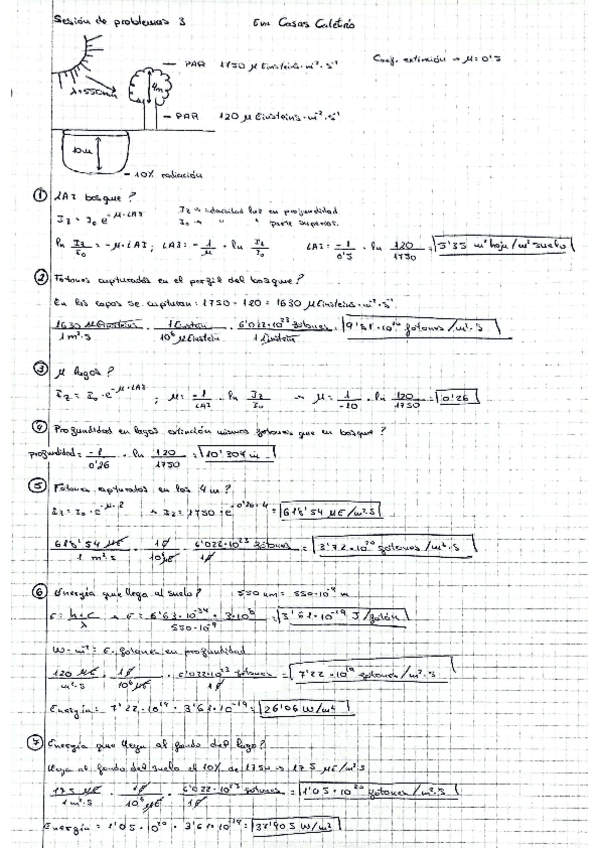 Sesión de problemas 3 Eva Casas Calatrió
PAR 1750 µEinsteins·m²·s⁻¹ Coef. extinción → µ=0'5
λ=550nm 4m
PAR 120 µEinsteins·m²·s⁻¹
10m
10% radiación
① LAI bosque?
Iz = I₀ e^-µ·LAI Iz → intensidad luz en profundidad
I₀ → " " parte superior.
ln Iz/I₀ = -µ·LAI; LAI = -1/µ · ln Iz/I₀ LAI = -1/0'5 · ln 120/1750 = 5'35 m² hoja/m² suelo
② Fotones capturados en el perfil del bosque?
En las copas se capturan: 1750 - 120 = 1630 µEinsteins·m⁻²·s⁻¹
1630 µEinsteins/1 m²·s · 1 Einstein/10⁶ µEinstein · 6'022·10²³ fotones/1 Einstein = 9'81·10²⁰ fotones/m²·s
③ µ lagos?
Iz = I₀·e^-µ·LAI; µ = -1/LAI · ln Iz/I₀ → µ = 1/-10 · ln 120/1750 = 0'26
④ Profundidad en lagos extinción mismos fotones que en bosque?
profundidad = -1/0'26 · ln 120/1750 = 10'307 m
⑤ Fotones capturados en los 4 m?
Iz = I₀·e^-µ·z → Iz = 1750·e^-0'26·4 = 618'54 µE/m²·s
618'54 µE/1 m²·s · 1E/10⁶µE · 6'022·10²³ fotones/1E = 3'72·10²⁰ fotones/m²·s
⑥ Energía que llega al suelo? 550 nm = 550·10⁻⁹ m
E = h·c/λ → E = 6'63·10⁻³⁴ · 3·10⁸/550·10⁻⁹ = 3'61·10⁻¹⁹ J/fotón
W·m⁻² = E. fotones en profundidad
120 µE/m²·s · 1E/10⁶ µE · 6'022·10²³ fotones/1E = 7'22·10¹⁹ fotones/m²·s
Energía = 7'22·10¹⁹ · 3'61·10⁻¹⁹ = 26'06 W/m²
⑦ Energía que llega al fondo del lago?
llega al fondo del suelo el 10% de 1750 → 175 µE/m²·s
175 µE/1 m²·s · 1E/10⁶ µE · 6'022·10²³ fotones/1E = 1'05·10²⁰ fotones/m²·s
Energía = 1'05·10²⁰ · 3'61·10⁻¹⁹ = 37'905 W/m²